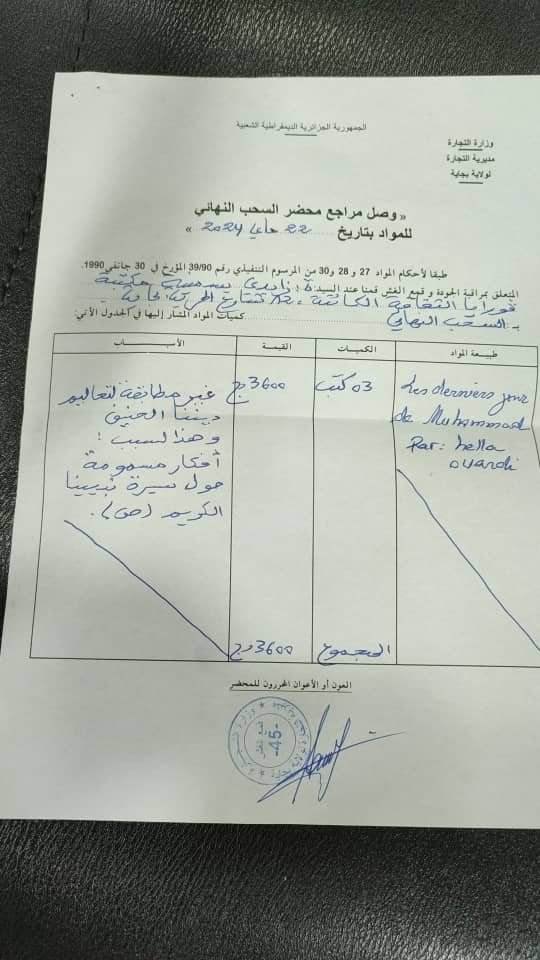 الجمهورية الجزائرية الديمقراطية الشعبية
وزارة التجارة
مديرية التجارة
لولاية بجاية
« وصل مراجع محضر السحب النهائي
للمواد بتاريخ 22 ماي 2024 »
طبقا لأحكام المواد 27 و 28 و 30 من المرسوم التنفيذي رقم 39/90 المؤرخ في 30 جانفي 1990.
المتعلق بمراقبة الجودة و قمع الغش قمنا عند السيد(ة):
الثقافية الكائنة شارع الحرية بجاية
بـ السحب النهائي كميات المواد المشار إليها في الجدول الآتي:
طبيعة المواد الكميات القيمة الأسباب
Les derniers jour
de Muhammad
Par: hella
ouardi
03 كتب
3600 دج
غير مطابقة لتعاليم
ديننا الحنيف
وهذا لسبب:
أفكار مسمومة
حول سيرة نبينا
الكريم (ص).
المجموع 3600 دج
العون أو الأعوان المحررون للمحضر
-45-